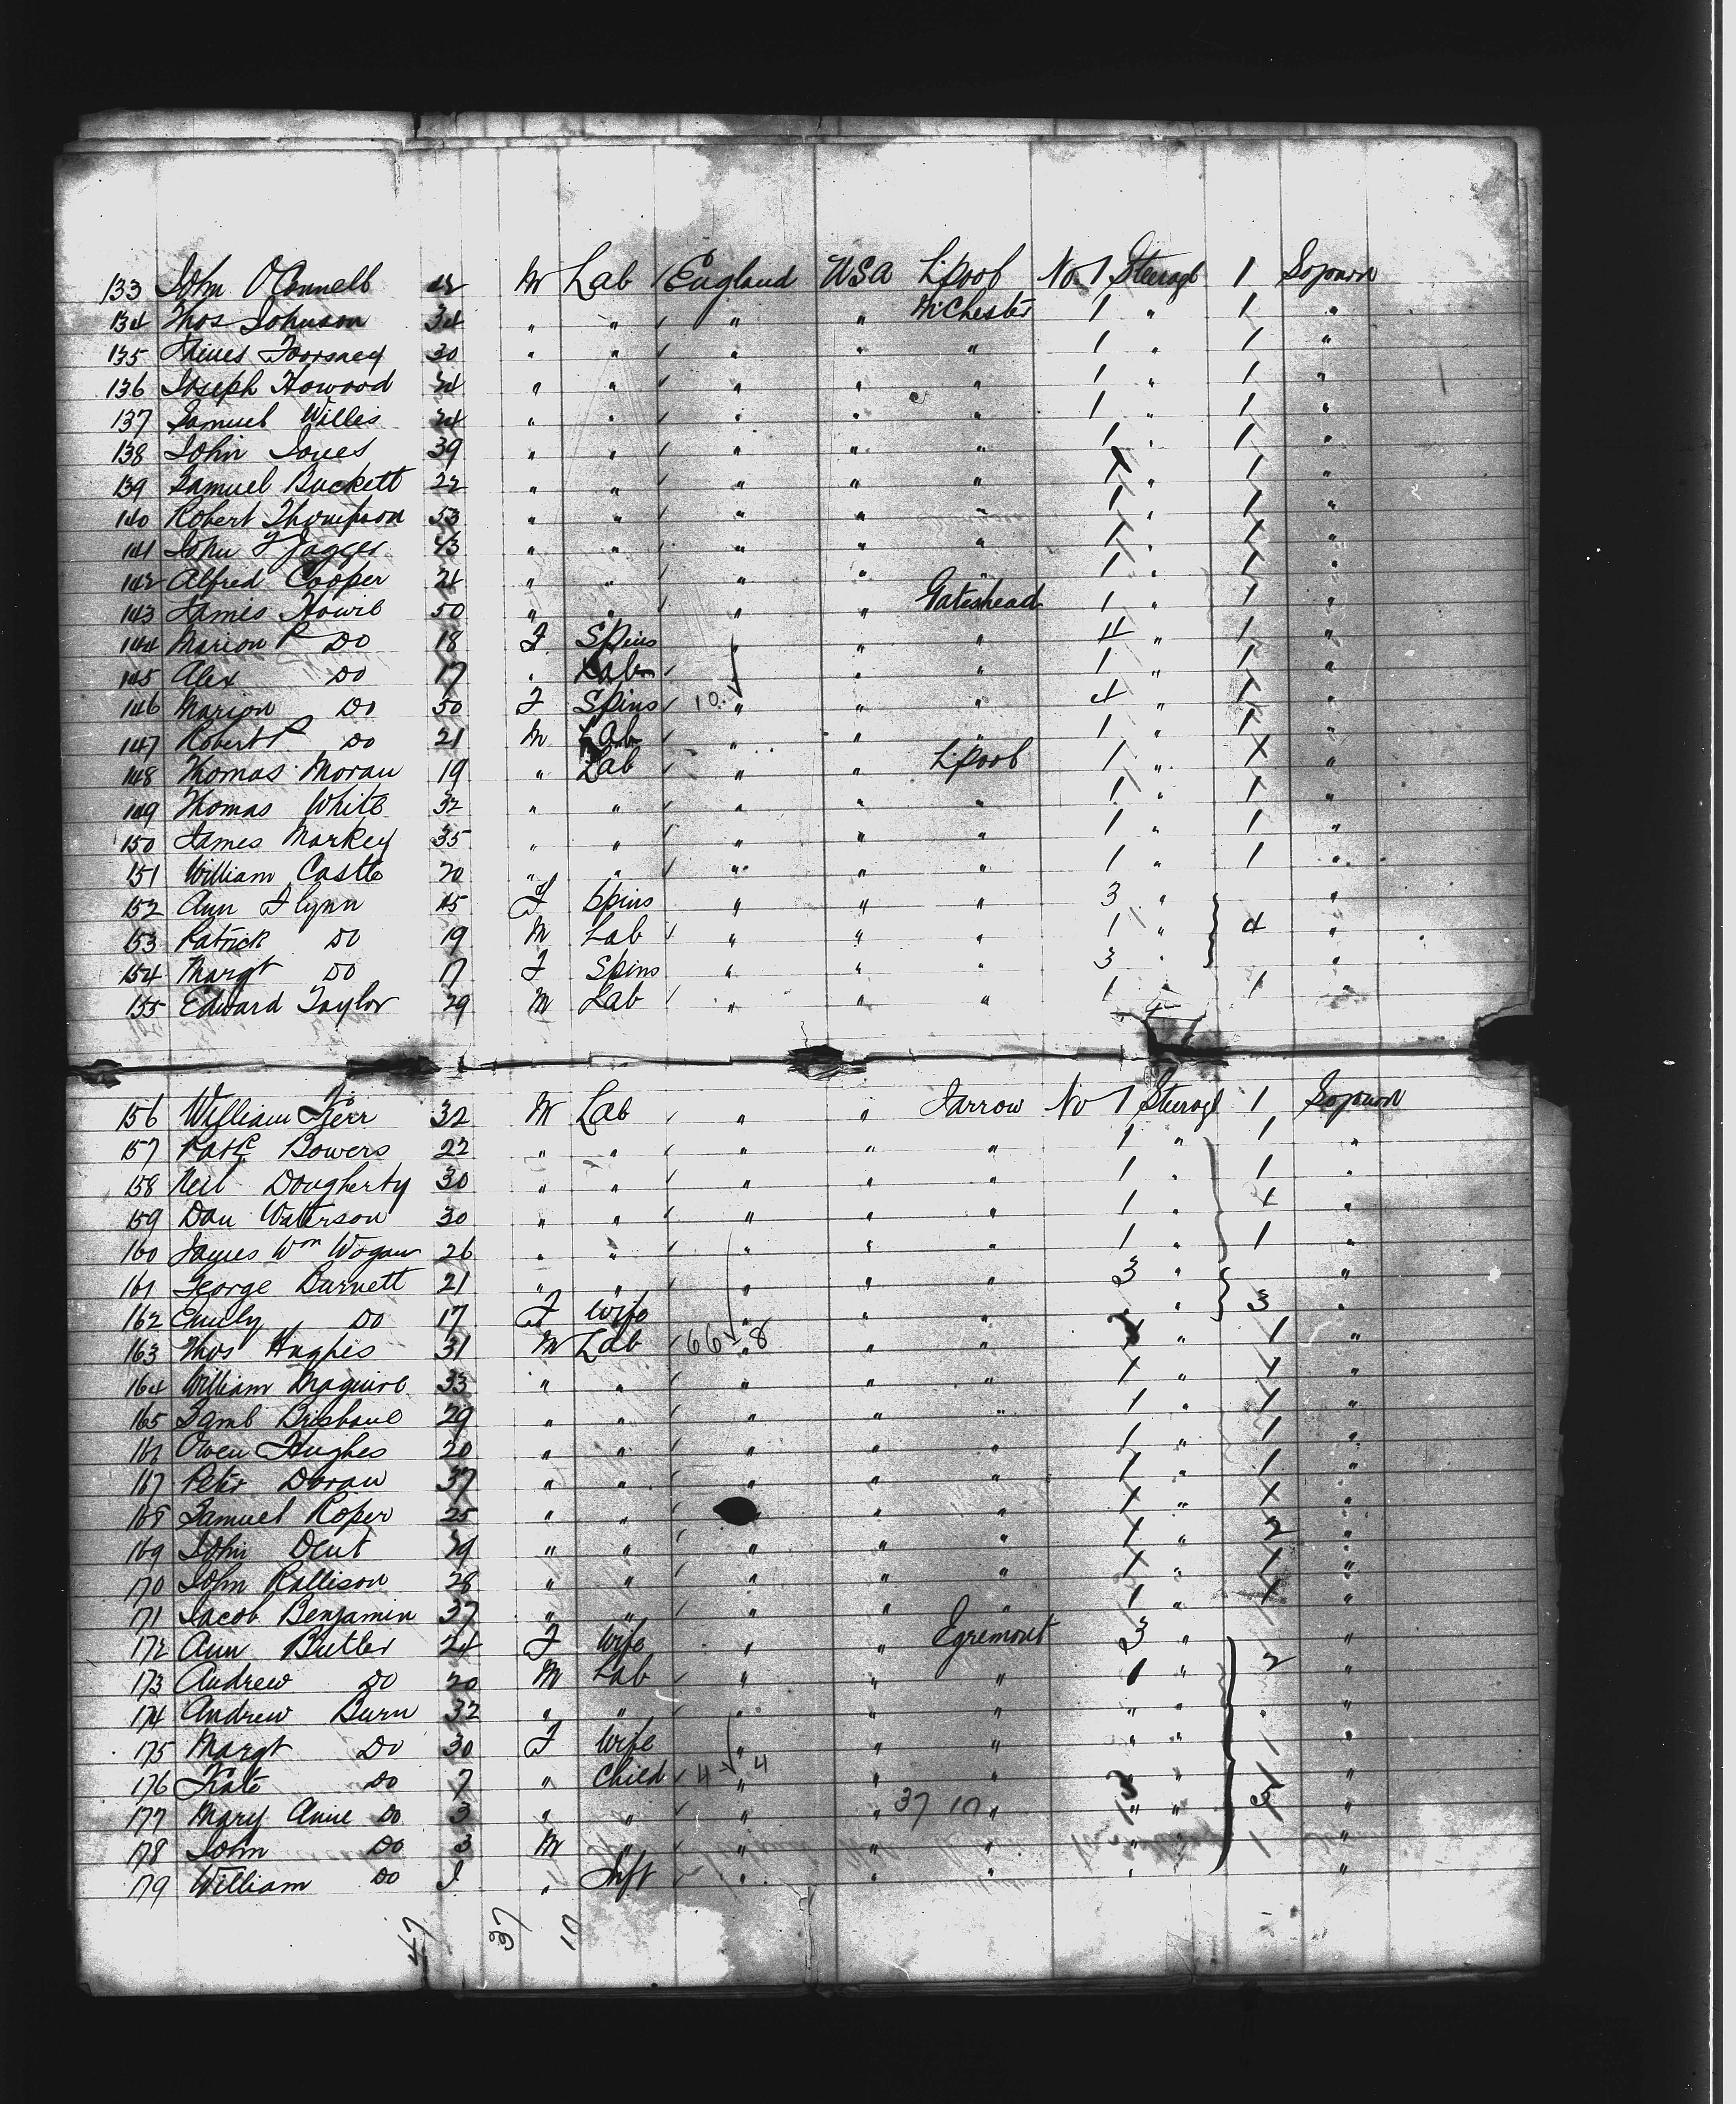 133 John O'Connell 42 M Lab ✓ England USA L'pool No 1 Steerage 1 Sojourn
134 Thos Johnson 34 " " ✓ " " M'Chester 1 " 1 "
135 30 " " ✓ " " " 1 " 1 "
136 Joseph Howood 24 " " ✓ " " " 1 " 1 "
137 Samuel Willes 24 " " ✓ " " " 1 " 1 "
138 John Jones 39 " " ✓ " " " 1 " 1 "
139 Samuel Buckett 22 " " ✓ " " " 1 " 1 "
140 Robert Thompson 53 " " ✓ " " " 1 " 1 "
141 John F Jagger 43 " " ✓ " " " 1 " 1 "
142 Alfred Cooper 24 " " ✓ " " " 1 " 1 "
143 James Howie 50 " " ✓ " " Gateshead 1 " 1 "
144 Marion P Do 18 F Spins " " 4 " 1 "
145 Alex Do 17 " Lab ✓ " " 1 " 1 "
146 Marion Do 50 F Spins ✓ 10 " " " 4 " 1 "
147 Robert P Do 21 M Lab ✓ " " " 1 " 1 "
148 Thomas Moran 19 " Lab ✓ " " L'pool 1 " 1 "
149 Thomas White 32 " " ✓ " " " 1 " 1 "
150 James Markey 35 " " ✓ " " " 1 " 1 "
151 William Castle 20 " " ✓ " " " 1 " 1 "
152 Ann Flynn 45 F Spins " " " 3 " "
153 Patrick Do 19 M Lab ✓ " " " 1 " 4 "
154 Margt Do 17 F Spins " " " 3 " "
155 Edward Taylor 29 M Lab ✓ " " " 1 1 "
156 William Kerr 32 M Lab ✓ " " Jarrow No 1 Steerage 1 Sojourn
157 Patk Bowers 22 " " ✓ " " " 1 " 1 "
158 Neil Dougherty 30 " " ✓ " " " 1 " 1 "
159 Dan Waterson 30 " " ✓ " " " 1 " 1 "
160 James Wm Wogan 26 " " ✓ " " " 1 " 1 "
161 George Burnett 21 " " ✓ " " " 3 " "
162 Emily Do 17 F Wife " " " " " 3 "
163 Thos Hughes 31 M Lab ✓ 66 " 8 " " 1 " 1 "
164 William Maguire 33 " " ✓ " " " 1 " 1 "
165 29 " " ✓ " " " 1 " 1 "
166 Owen Hughes 20 " " ✓ " " " 1 " 1 "
167 Peter Doran 37 " " ✓ " " " 1 " 1 "
168 Samuel Roper 25 " " ✓ " " 1 " 1 "
169 John Dent 29 " " ✓ " " " 1 " 2 "
170 John Rallison 28 " " ✓ " " " 1 " 1 "
171 Jacob Benjamin 37 " " ✓ " " " 1 " 1 "
172 Ann Butler 24 F Wife " " Egremont 3 " "
173 Andrew Do 20 M Lab ✓ " " " 1 " 2 "
174 Andrew Burn 32 " " ✓ " " " " " "
175 Margt Do 30 F Wife " " " " " "
176 Kate Do 7 " Child ✓ 4 " 4 " " 3 " "
177 Mary Anne Do 3 " " ✓ " " 37 10 " " " 5 "
178 John Do 3 M " ✓ " " " " " "
179 William Do " Inft ✓ " " " " "
47 37 10